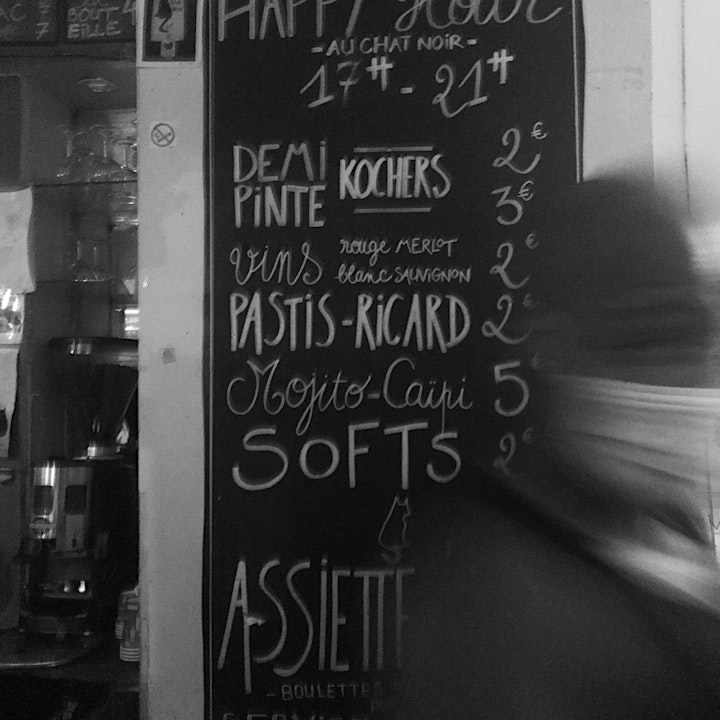 BOUT
EILLE
HAPPY HOUR
- AU CHAT NOIR -
17H - 21H
DEMI KOCHERS 2€
PINTE 3€
vins rouge MERLOT 2€
blanc SAUVIGNON
PASTIS-RICARD 2€
Mojito-Caïpi 5
SOFTS 2€
ASSIETTE
- BOULETTE